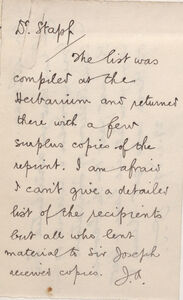 Dr. Stapf
The list was
compiled at the
Herbarium and returned
there with a few
surplus copies of the
reprint. I am afraid
I can't give a detailed
list of the recipients
but all who lent
material to Sir Joseph
received copies.